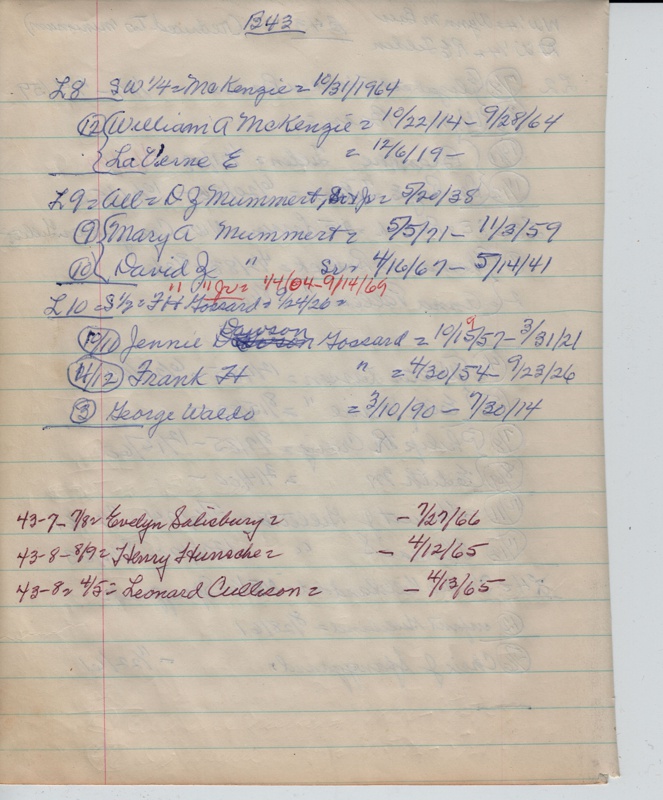 B43
L8 SW 1/4 = McKenzie = 10/31/1964
(12) William A McKenzie = 10/22/14 - 9/28/64
LaVerne E = 12/6/19 -
L9 = All = D Z Mummert, Jr = 5/20/38
(9) Mary A Mummert = 5/5/71 - 11/3/59
(10) David Z " Sr = 4/16/67 - 5/14/41
" " Jr = 1/4/04 - 9/14/69
L10 = S 1/2 = F H Gossard = 9/24/26 =
(10/11) Jennie Dawson Gossard = 10/19/57 - 3/31/21
(11/12) Frank H " = 4/30/54 - 9/23/26
(3) George Waldo = 3/10/90 - 7/30/14
43-7-7/8 = Evelyn Salisbury = - 7/27/66
43-8-8/9 = Henry Hunsche = - 4/12/65
43-8 = 4/5 = Leonard Cullison = - 4/13/65